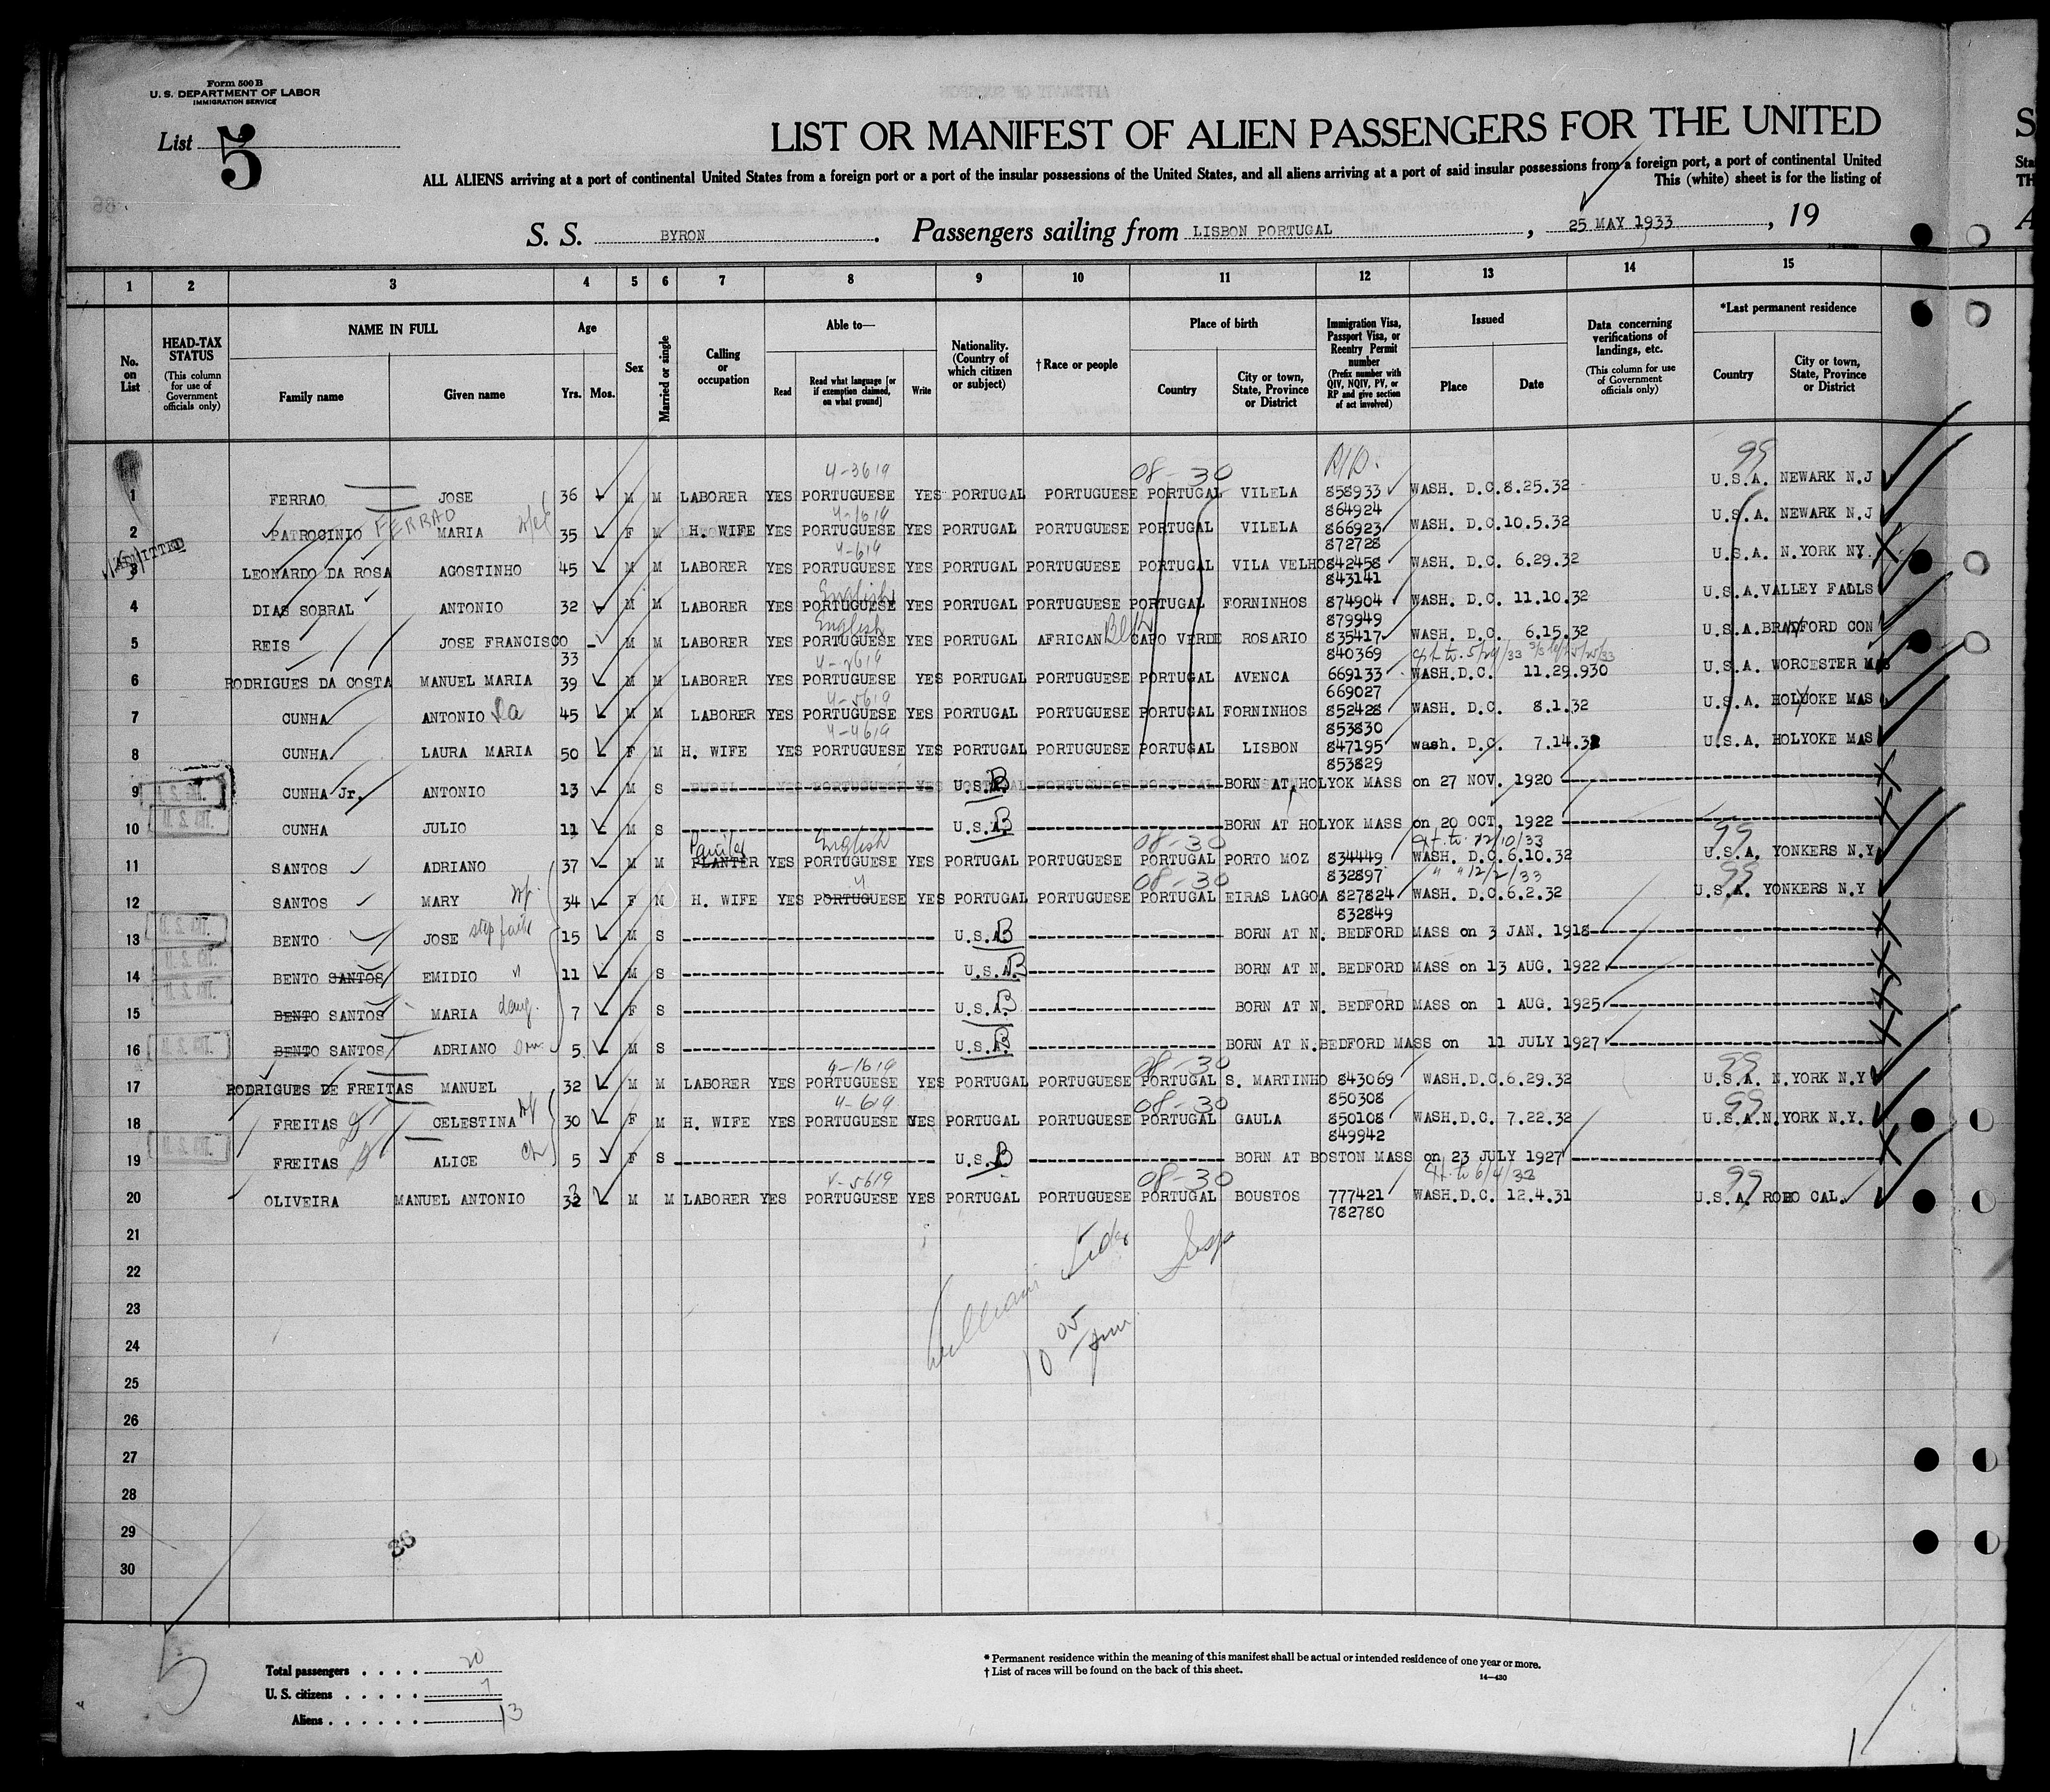 Form 500 B
U. S. DEPARTMENT OF LABOR
IMMIGRATION SERVICE
List 5
LIST OR MANIFEST OF ALIEN PASSENGERS FOR THE UNITED
ALL ALIENS arriving at a port of continental United States from a foreign port or a port of the insular possessions of the United States, and all aliens arriving at a port of said insular possessions from a foreign port, a port of continental United
This (white) sheet is for the listing of
S. S. BYRON. Passengers sailing from LISBON PORTUGAL, 25 MAY 1933, 19
1 2 3 4 5 6 7 8 9 10 11 12 13 14 15
No. on List
HEAD-TAX STATUS (This column for use of Government officials only)
NAME IN FULL Family name Given name
Age Yrs. Mos.
Sex
Married or single
Calling or occupation
Able to— Read Read what language [or if exemption claimed, on what ground] Write
Nationality. (Country of which citizen or subject)
† Race or people
Place of birth Country City or town, State, Province or District
Immigration Visa, Passport Visa, or Reentry Permit number (Prefix number with QIV, NQIV, PV, or RP and give section of act involved)
Issued Place Date
Data concerning verifications of landings, etc. (This column for use of Government officials only)
*Last permanent residence Country City or town, State, Province or District
4-3619 08-30 99
1 FERRAO JOSE 36 M M LABORER YES PORTUGUESE YES PORTUGAL PORTUGUESE PORTUGAL VILELA 858933 WASH. D.C. 8.25.32 U.S.A. NEWARK N.J
864924
2 PATROCINIO FERRAO MARIA wife 35 F M H. WIFE YES PORTUGUESE YES PORTUGAL PORTUGUESE PORTUGAL VILELA 866923 WASH. D.C. 10.5.32 U.S.A. NEWARK N.J
872728
ADMITTED
3 LEONARDO DA ROSA AGOSTINHO 45 M M LABORER YES PORTUGUESE YES PORTUGAL PORTUGUESE PORTUGAL VILA VELHO 842458 WASH. D.C. 6.29.32 U.S.A. N.YORK NY.
843141
English
4 DIAS SOBRAL ANTONIO 32 M M LABORER YES PORTUGUESE YES PORTUGAL PORTUGUESE PORTUGAL FORNINHOS 874904 WASH. D.C. 11.10.32 U.S.A. VALLEY FALLS
879949
English
5 REIS JOSE FRANCISCO 33 M M LABORER YES PORTUGUESE YES PORTUGAL AFRICAN Blk CAPO VERDE ROSARIO 835417 WASH. D.C. 6.15.32 U.S.A. BRADFORD CON
840369
6 RODRIGUES DA COSTA MANUEL MARIA 39 M M LABORER YES PORTUGUESE YES PORTUGAL PORTUGUESE PORTUGAL AVENCA 669133 WASH.D.C. 11.29.930 U.S.A. WORCESTER MAS
669027
4-5619
7 CUNHA ANTONIO Da 45 M M LABORER YES PORTUGUESE YES PORTUGAL PORTUGUESE PORTUGAL FORNINHOS 852428 WASH. D.C. 8.1.32 U.S.A. HOLYOKE MAS
853830
4-4619
8 CUNHA LAURA MARIA 50 F M H. WIFE YES PORTUGUESE YES PORTUGAL PORTUGUESE PORTUGAL LISBON 847195 wash. D.C. 7.14.32 U.S.A. HOLYOKE MAS
853829
9 U. S. CIT. CUNHA Jr. ANTONIO 13 M S U.S.A. BORN AT HOLYOK MASS on 27 NOV. 1920
10 U. S. CIT. CUNHA JULIO 11 M S U.S.A. BORN AT HOLYOK MASS on 20 OCT. 1922
English 08-30 99
11 SANTOS ADRIANO 37 M M PLANTER YES PORTUGUESE YES PORTUGAL PORTUGUESE PORTUGAL PORTO MOZ 834449 WASH. D.C. 6.10.32 U.S.A. YONKERS N.Y
832897
08-30 99
12 SANTOS MARY wf. 34 F M H. WIFE YES PORTUGUESE YES PORTUGAL PORTUGUESE PORTUGAL EIRAS LAGOA 827824 WASH. D.C. 6.2.32 U.S.A. YONKERS N.Y
832849
13 U. S. CIT. BENTO JOSE 15 M S U.S.A. BORN AT N. BEDFORD MASS on 3 JAN. 1918
14 U. S. CIT. BENTO SANTOS EMIDIO " 11 M S U.S.A. BORN AT N. BEDFORD MASS on 13 AUG. 1922
15 U. S. CIT. BENTO SANTOS MARIA daug. 7 F S U.S.A. BORN AT N. BEDFORD MASS on 1 AUG. 1925
16 U. S. CIT. BENTO SANTOS ADRIANO 5 M S U.S.A. BORN AT N.BEDFORD MASS on 11 JULY 1927
4-1619 08-30 99
17 RODRIGUES DE FREITAS MANUEL 32 M M LABORER YES PORTUGUESE YES PORTUGAL PORTUGUESE PORTUGAL S. MARTINHO 843069 WASH.D.C. 6.29.32 U.S.A. N.YORK N.Y
850308
4-619 08-30 99
18 FREITAS CELESTINA wf 30 F M H. WIFE YES PORTUGUESE YES PORTUGAL PORTUGUESE PORTUGAL GAULA 850108 WASH.D.C. 7.22.32 U.S.A. N.YORK N.Y.
849942
19 U. S. CIT. FREITAS ALICE ch 5 F S U.S. BORN AT BOSTON MASS on 23 JULY 1927
4-5619 08-30 99
20 OLIVEIRA MANUEL ANTONIO 32 M M LABORER YES PORTUGUESE YES PORTUGAL PORTUGUESE PORTUGAL BOUSTOS 777421 WASH.D.C. 12.4.31 U.S.A. ROBO CAL.
782780
21
22
23
24
25
26
27
28
29
30
William
10 05
36
5
Total passengers . . . . 20
U. S. citizens . . . . . 7
Aliens . . . . . . 13
* Permanent residence within the meaning of this manifest shall be actual or intended residence of one year or more.
† List of races will be found on the back of this sheet.
14—430